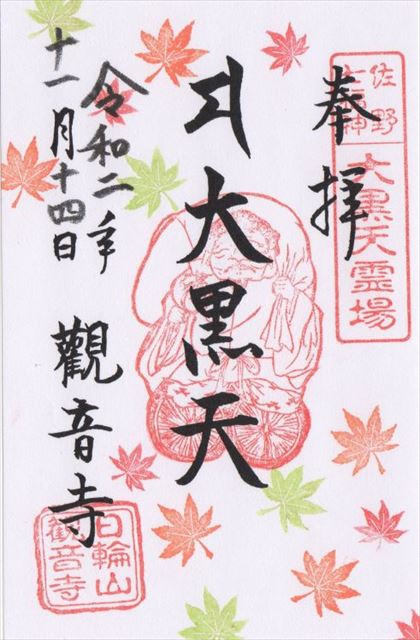 佐野
七福神
大黒天霊場
奉拝
大黒天
令和二年
十一月十四日
觀音寺
日輪山
觀音寺